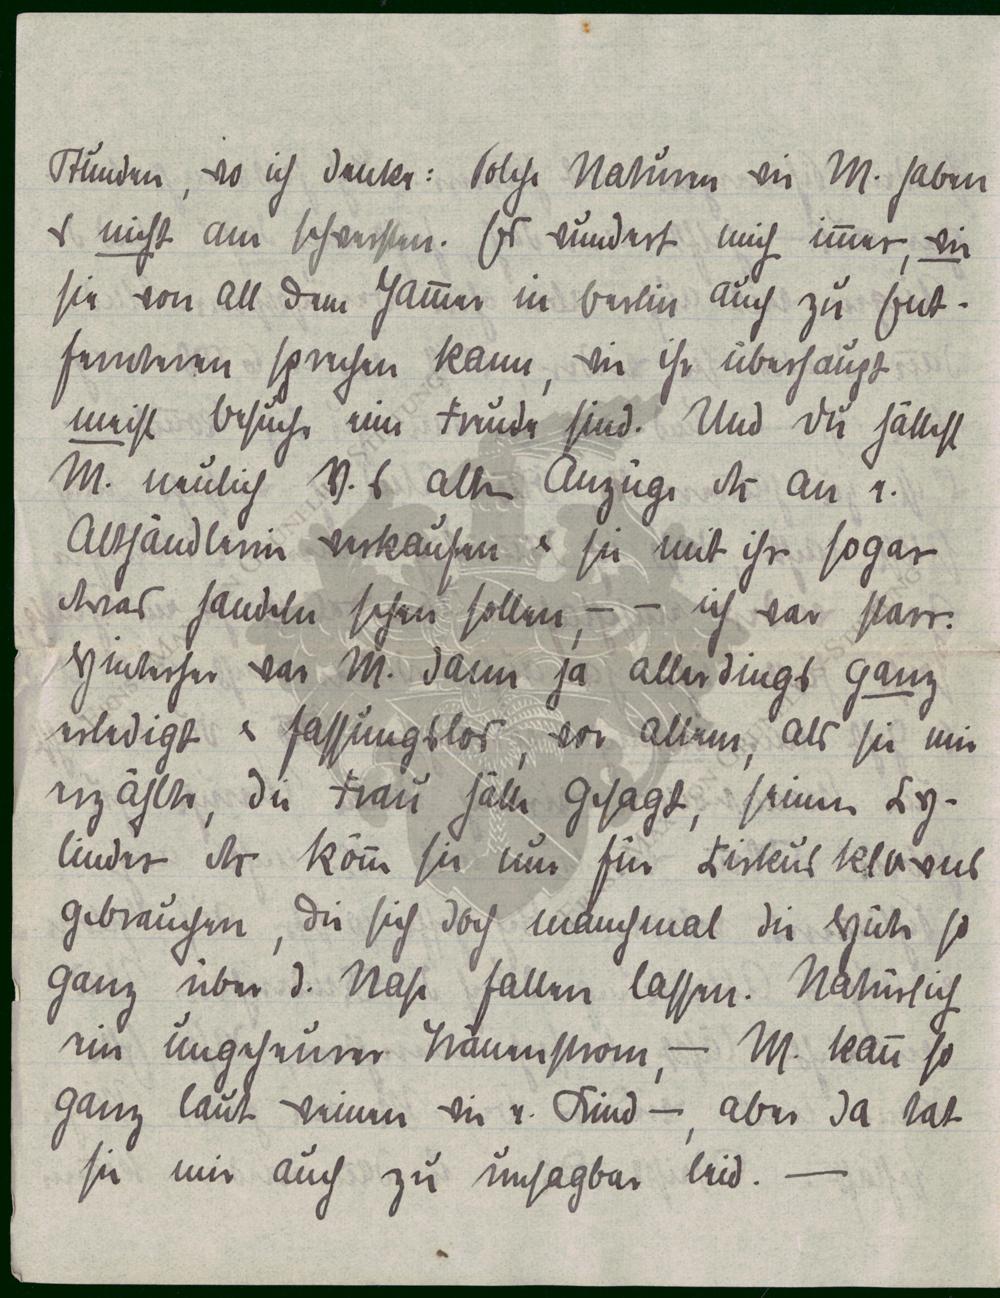 Stunden, wo ich denke: Solche Naturen wie M. haben
es nicht am schwersten. Es wundert mich immer, wie
sie von all dem Jammer in Berlin auch zu Ent-
fernteren sprechen kann, wie ihr überhaupt
meist Besuche eine Freude sind. Und Du hättest
M. neulich V.s alte Anzüge etc an e.
Althändlerin verkaufen & sie mit ihr sogar
etwas handeln sehen sollen, — — ich war starr.
Hinterher war M. dann ja allerdings ganz
erledigt & fassungslos, vor allem, als sie mir
erzählte, die Frau hätte gesagt, seinen Zy-
linder etc könne sie nur für Zirkusklowns
gebrauchen, die sich doch manchmal die Hüte so
ganz über d. Nase fallen lassen. Natürlich
ein ungeheurer Tränenstrom, — M. kann so
ganz laut weinen wie e. Kind —, aber da tat
sie mir auch zu unsagbar leid. —